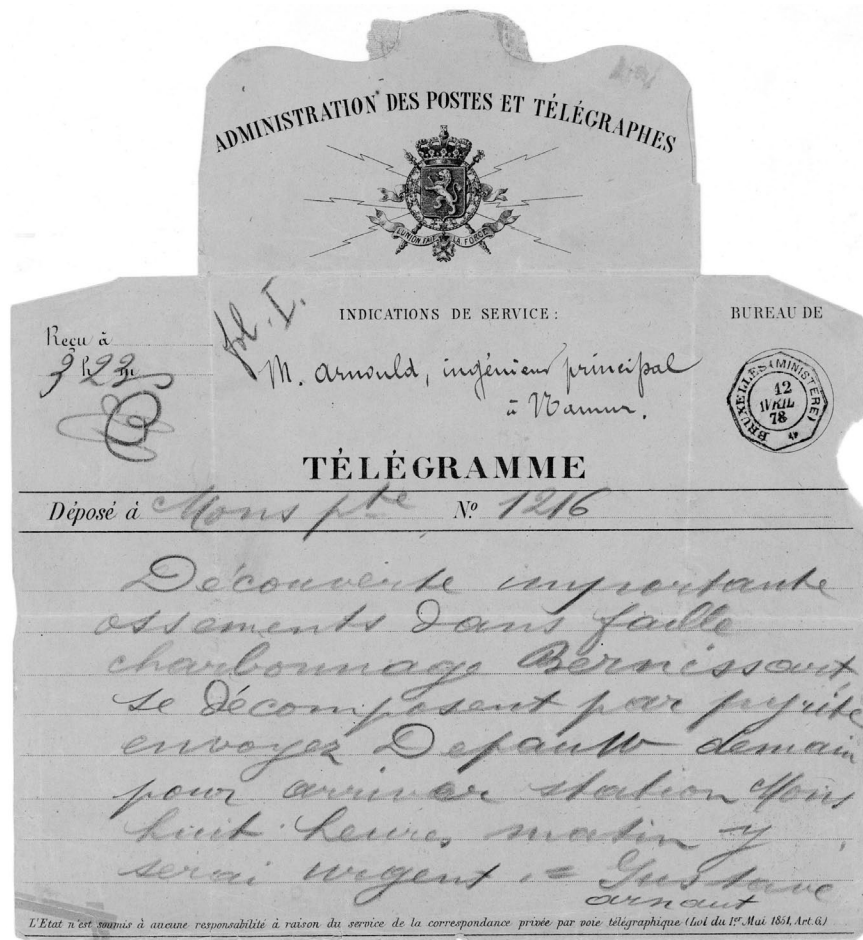 ADMINISTRATION DES POSTES ET TÉLÉGRAPHES
L'UNION FAIT LA FORCE
fol. I.
INDICATIONS DE SERVICE :
BUREAU DE
Reçu à
3 h 23 m
M. Arnould, ingénieur principal
à Namur.
BRUXELLES (MINISTÈRE)
12
AVRIL
78
TÉLÉGRAMME
Déposé à Mons pte No 1216
Découverte importante
ossements dans faille
charbonnage Bernissart
se décomposent par pyrite
envoyez Depauw demain
pour arriver station Mons
huit heures matin y
serai urgent = Gustave
arnaut
L'Etat n'est soumis à aucune responsabilité à raison du service de la correspondance privée par voie télégraphique (Loi du 1er Mai 1851, Art. 6.)